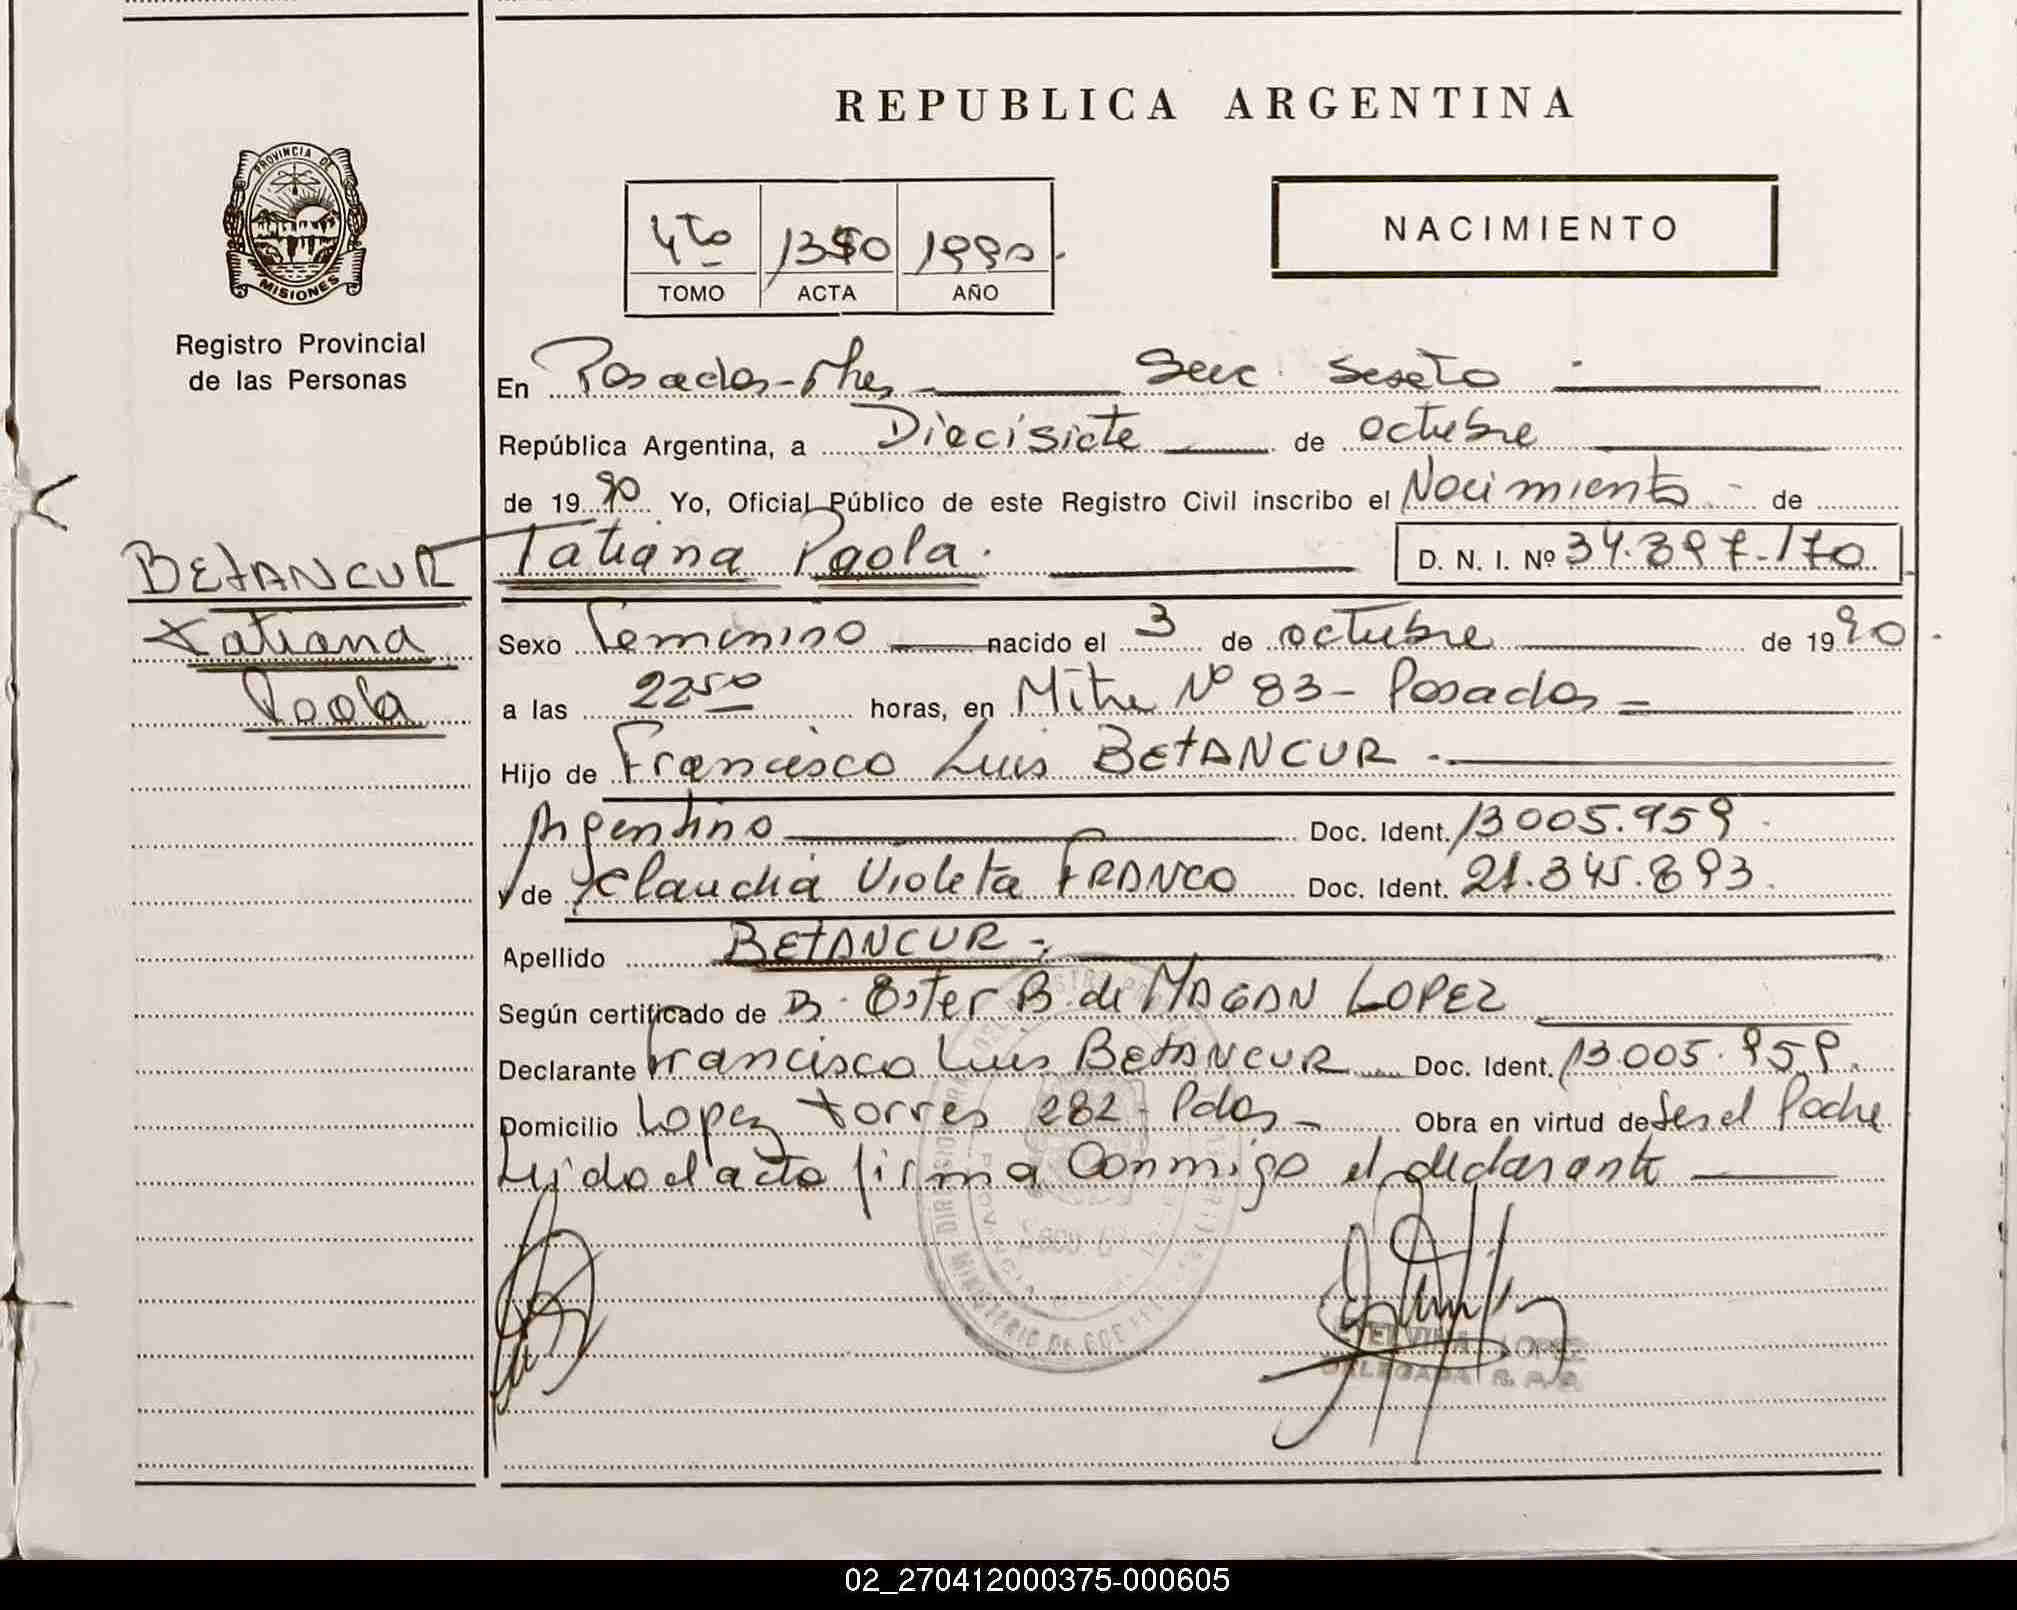 REPUBLICA ARGENTINA
PROVINCIA DE
MISIONES
Registro Provincial
de las Personas
4to 1350 1990.
TOMO ACTA AÑO
NACIMIENTO
En Posadas-Mnes Secc. Sexto
República Argentina, a Diecisiete de octubre
de 1990 Yo, Oficial Público de este Registro Civil inscribo el Nacimiento de
BETANCUR
Tatiana
Paola
Tatiana Paola. D. N. I. Nº 34.397.170
Sexo Femenino nacido el 3 de octubre de 1990.
a las 22 50 horas, en Mitre Nº 83 - Posadas
Hijo de Francisco Luis BETANCUR
Argentino Doc. Ident. 13.005.959
y de Claudia Violeta FRANCO Doc. Ident. 21.345.893.
Apellido BETANCUR
Según certificado de Ester B. de MAGAN LOPEZ
Declarante Francisco Luis BETANCUR Doc. Ident. 13.005.959.
Domicilio Lopez torres 282 - Pdas Obra en virtud de Ser el Padre
Leido el acta firma Conmigo el declarante
ETELVINA LOPEZ
DELEGADA R. P. P.
02_270412000375-000605